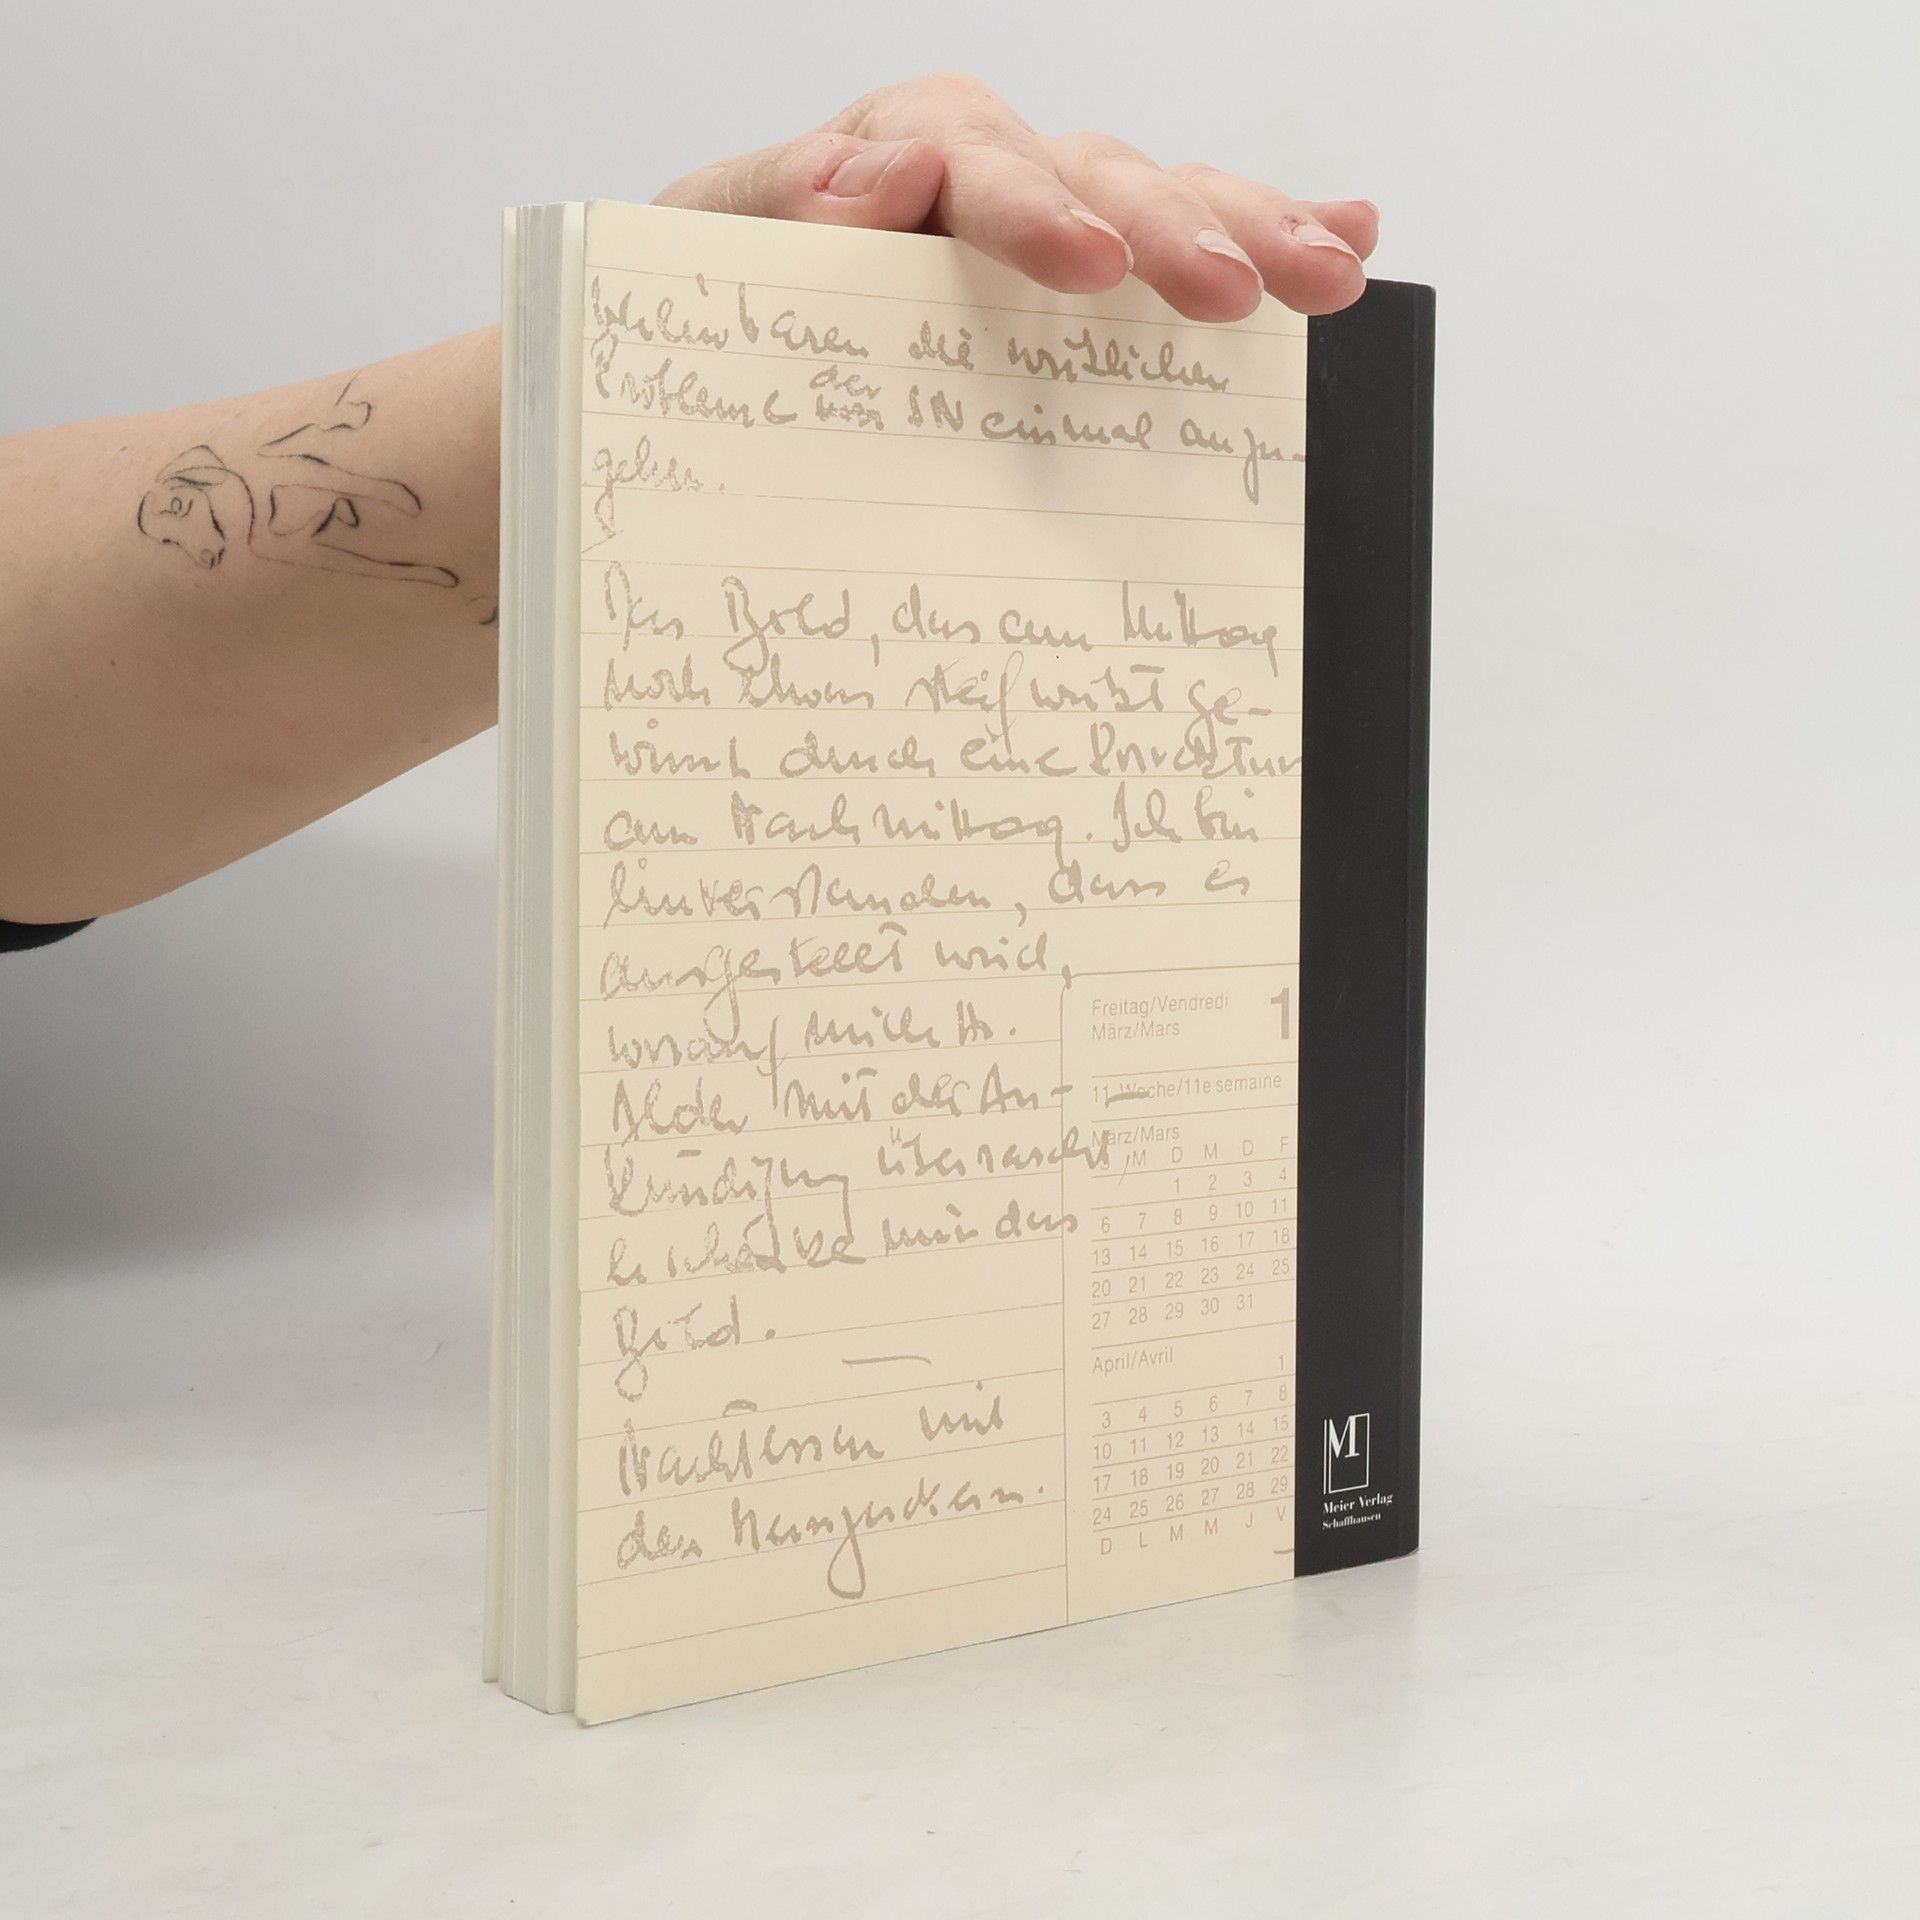 vereinbaren die wirklichen
Probleme der SN einmal anzu-
gehen.
Das Bild, das am Mittag
noch etwas steif wirkt ge-
winnt durch eine Korrektur
am Nachmittag. Ich bin
einverstanden, dass es
ausgestellt wird,
worauf mich Hr.
mit der An-
kündigung überrascht
er schenke mir das
Bild.
Nachtessen mit
den
Freitag/Vendredi
März/Mars
1
11. Woche/11e semaine
März/Mars
S M D M D F
1 2 3 4
6 7 8 9 10 11
13 14 15 16 17 18
20 21 22 23 24 25
27 28 29 30 31
April/Avril
1
3 4 5 6 7 8
10 11 12 13 14 15
17 18 19 20 21 22
24 25 26 27 28 29
D L M M J V
M
Meier Verlag
Schaffhausen